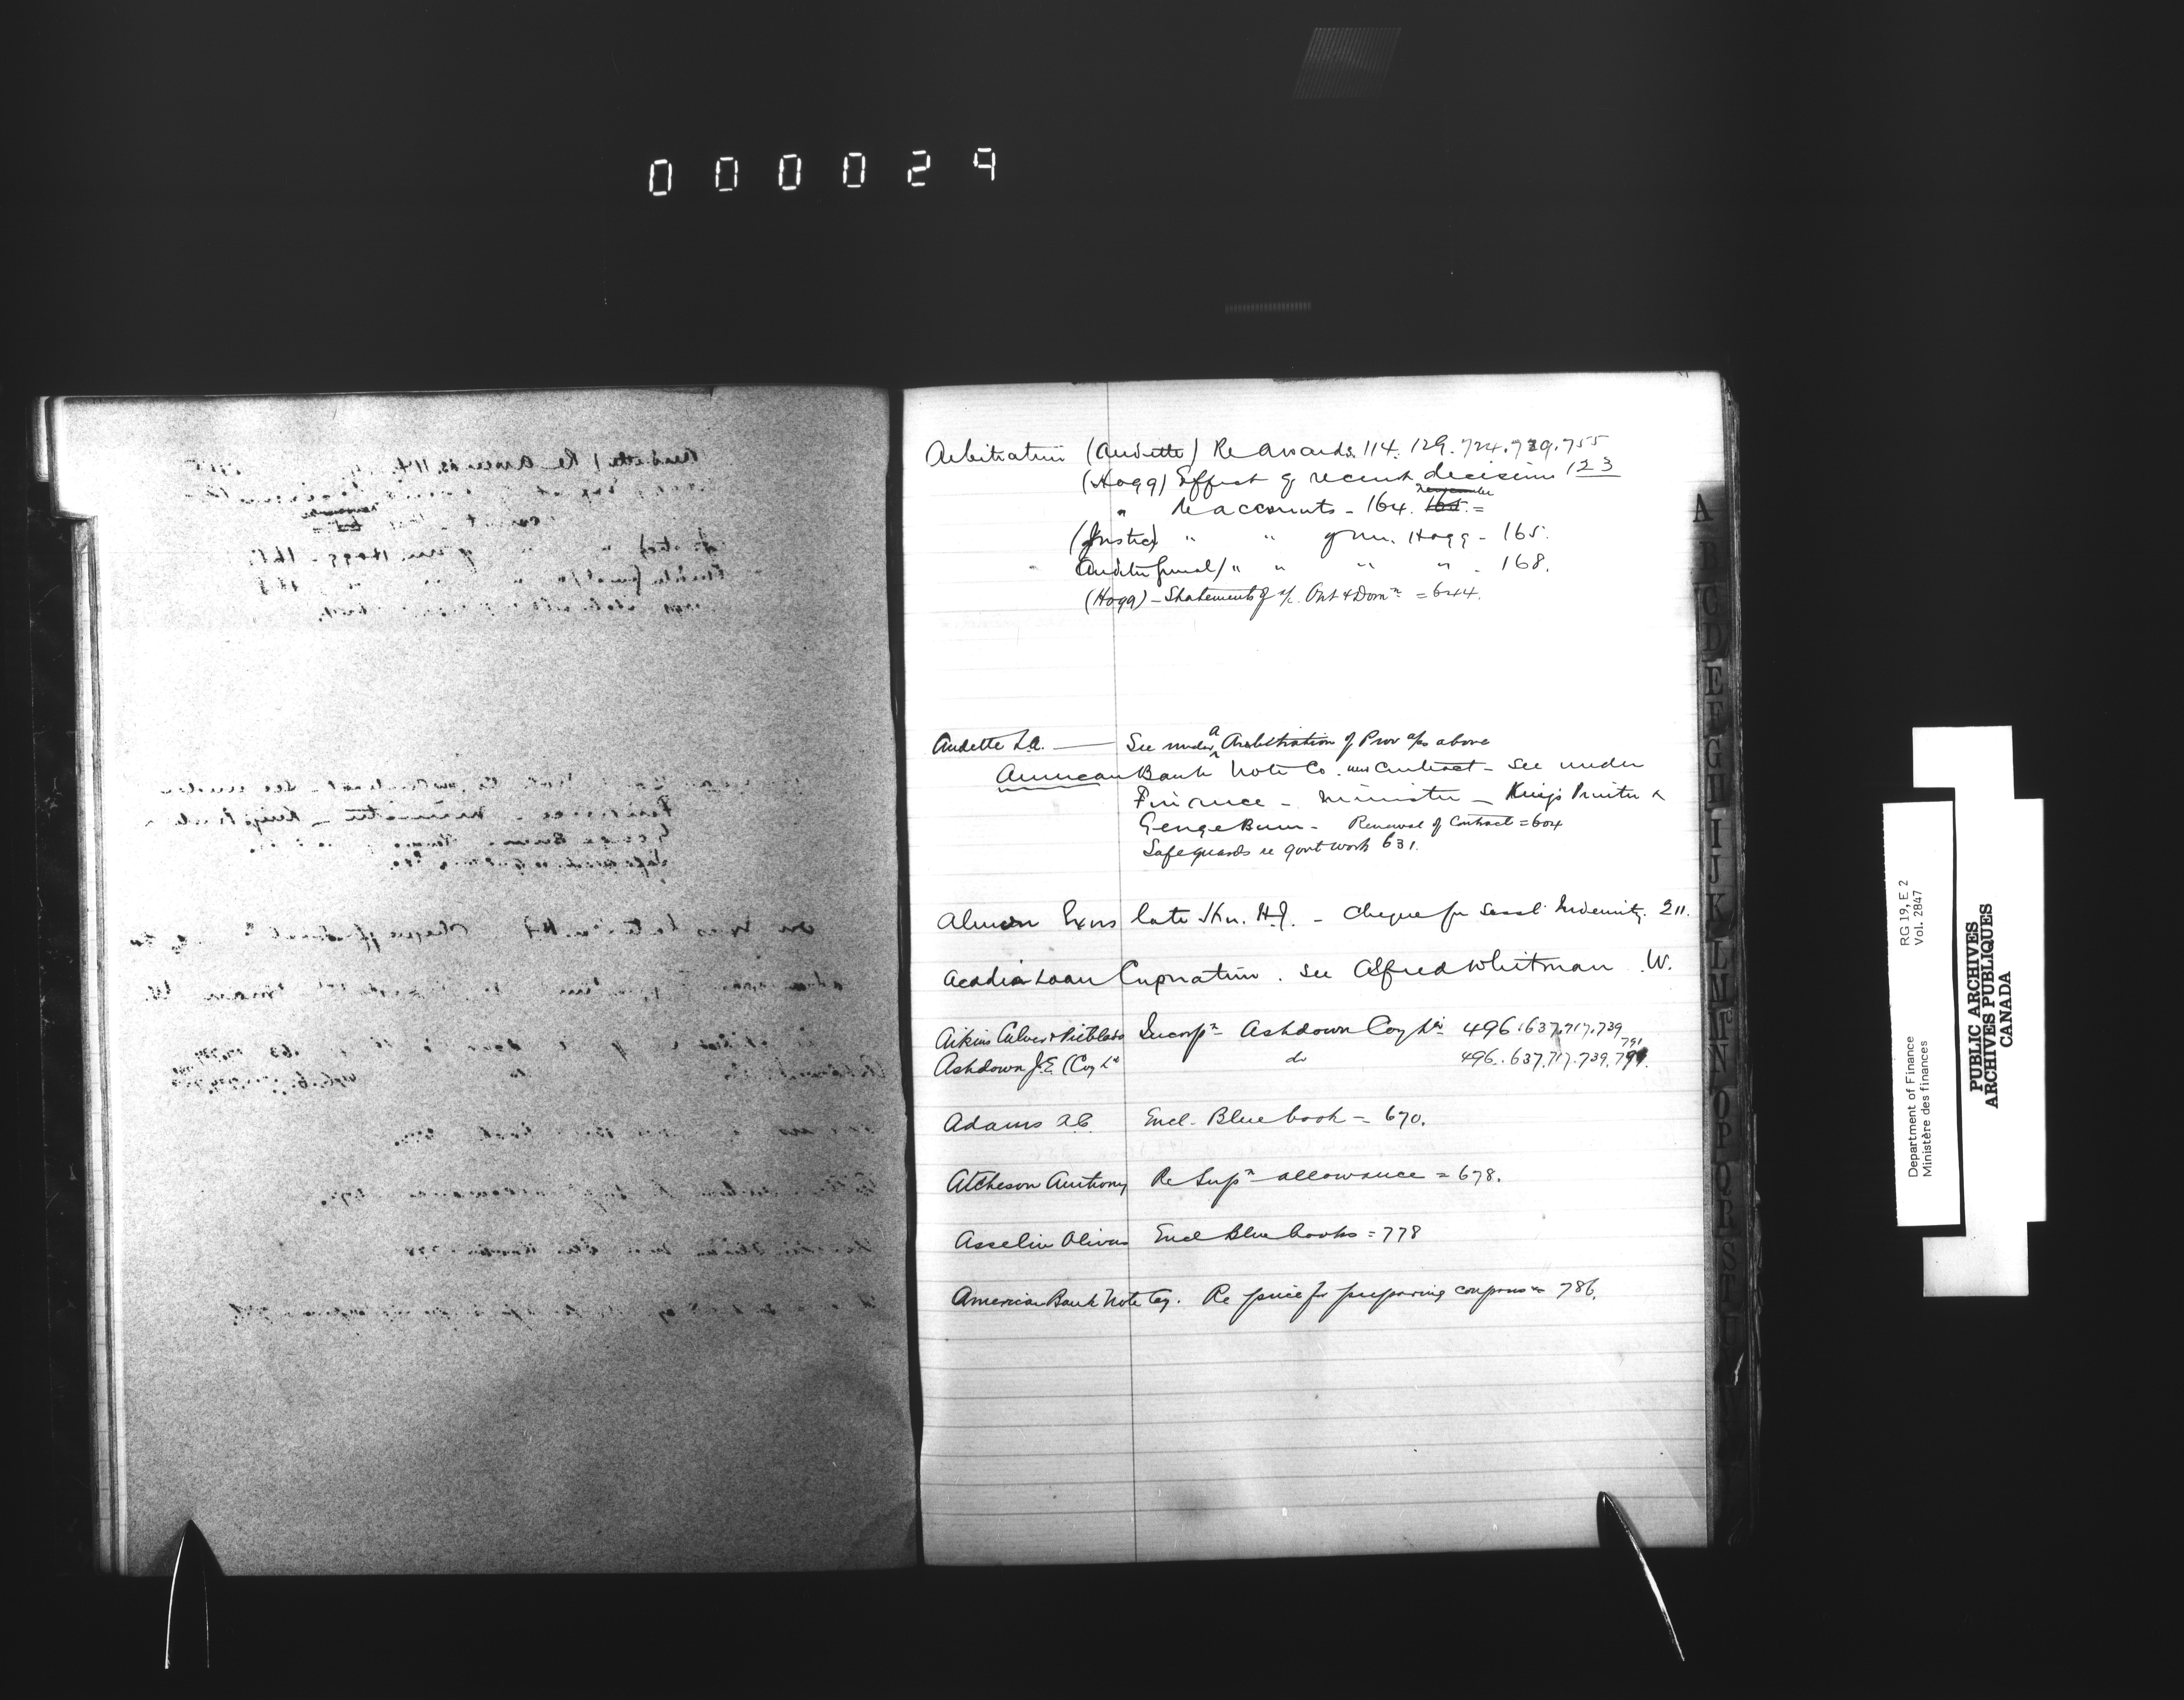 000029
Arbitration (Audette) Re Awards. 114. 129. 724. 729. 755
(Hogg) Effect of recent decisions 123
" Re accounts - 164. 165. =
(Justice) " " of Mr. Hogg - 165.
Auditor General) " " " " - 168.
(Hogg) - Statements of a/c. Ont & Domn = 644.
Audette L.A. — See under Arbitration of Prov a/cs above
American Bank Note Co. new Contract - see under
Finance - Minister - King's Printer &
George Burn - Renewal of Contract = 604
Safeguards re govt work 631.
Almon Exrs late Hn. H.J. - Cheque for Sessl Indemnity. 211.
Acadia Loan Corporation. see Alfred Whitman W.
Aikins Culver & Pitblado Incorpn Ashdown Coy Ltd 496. 637. 717. 739
791
Ashdown J.E. (Coy Ld do 496. 637. 717. 739. 791.
Adams A.C. Encl. Blue book = 670.
Atcheson Anthony Re Supn allowance = 678.
Asselin Olivar Encl Blue books = 778
American Bank Note Coy. Re price for preparing coupons = 786.
A
B
C
D
E
F
G
H
I
J
K
L
M
N
O
P
Q
R
S
T
RG 19, E 2
Vol. 2847
Department of Finance
Ministère des finances
PUBLIC ARCHIVES
ARCHIVES PUBLIQUES
CANADA